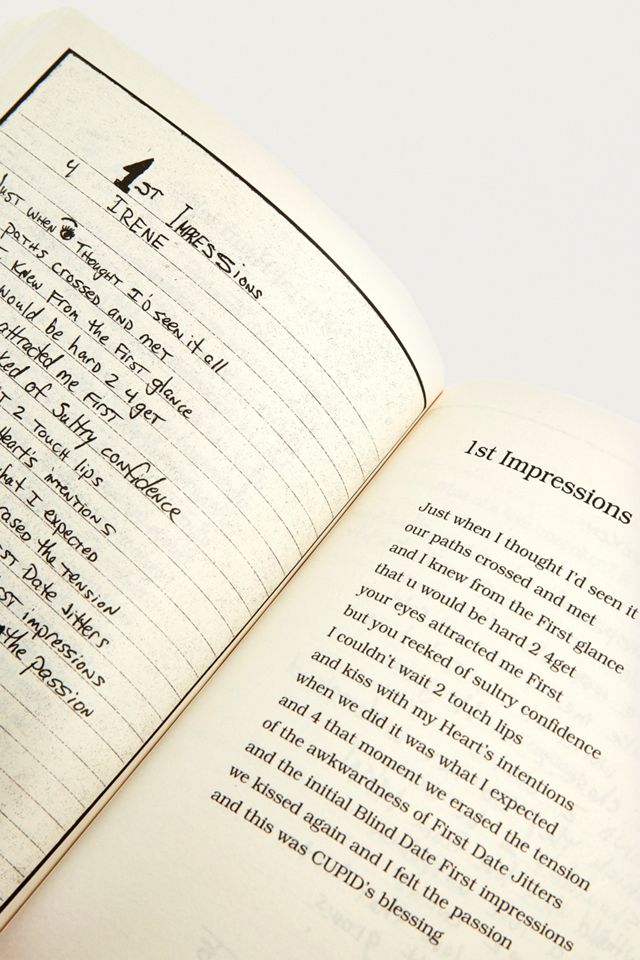 4 1ST IMPRESSIONS
IRENE
JUST WHEN THOUGHT I'D seen it all
PATHS CROSSED AND MET
I KNEW FROM the FIRST glance
would be hard 2 4 get
attracted me FIRST
ked of Sultry confidence
T 2 TOUCH lips
Heart's intentions
hat I expected
rased the TENSION
ST Date Jitters
ST impressions
the passion
1st Impressions
Just when I thought I'd seen it
our paths crossed and met
and I knew from the First glance
that u would be hard 2 4get
your eyes attracted me First
but you reeked of sultry confidence
I couldn't wait 2 touch lips
and kiss with my Heart's intentions
when we did it was what I expected
and 4 that moment we erased the tension
of the awkwardness of First Date Jitters
and the initial Blind Date First impressions
we kissed again and I felt the passion
and this was CUPID's blessing